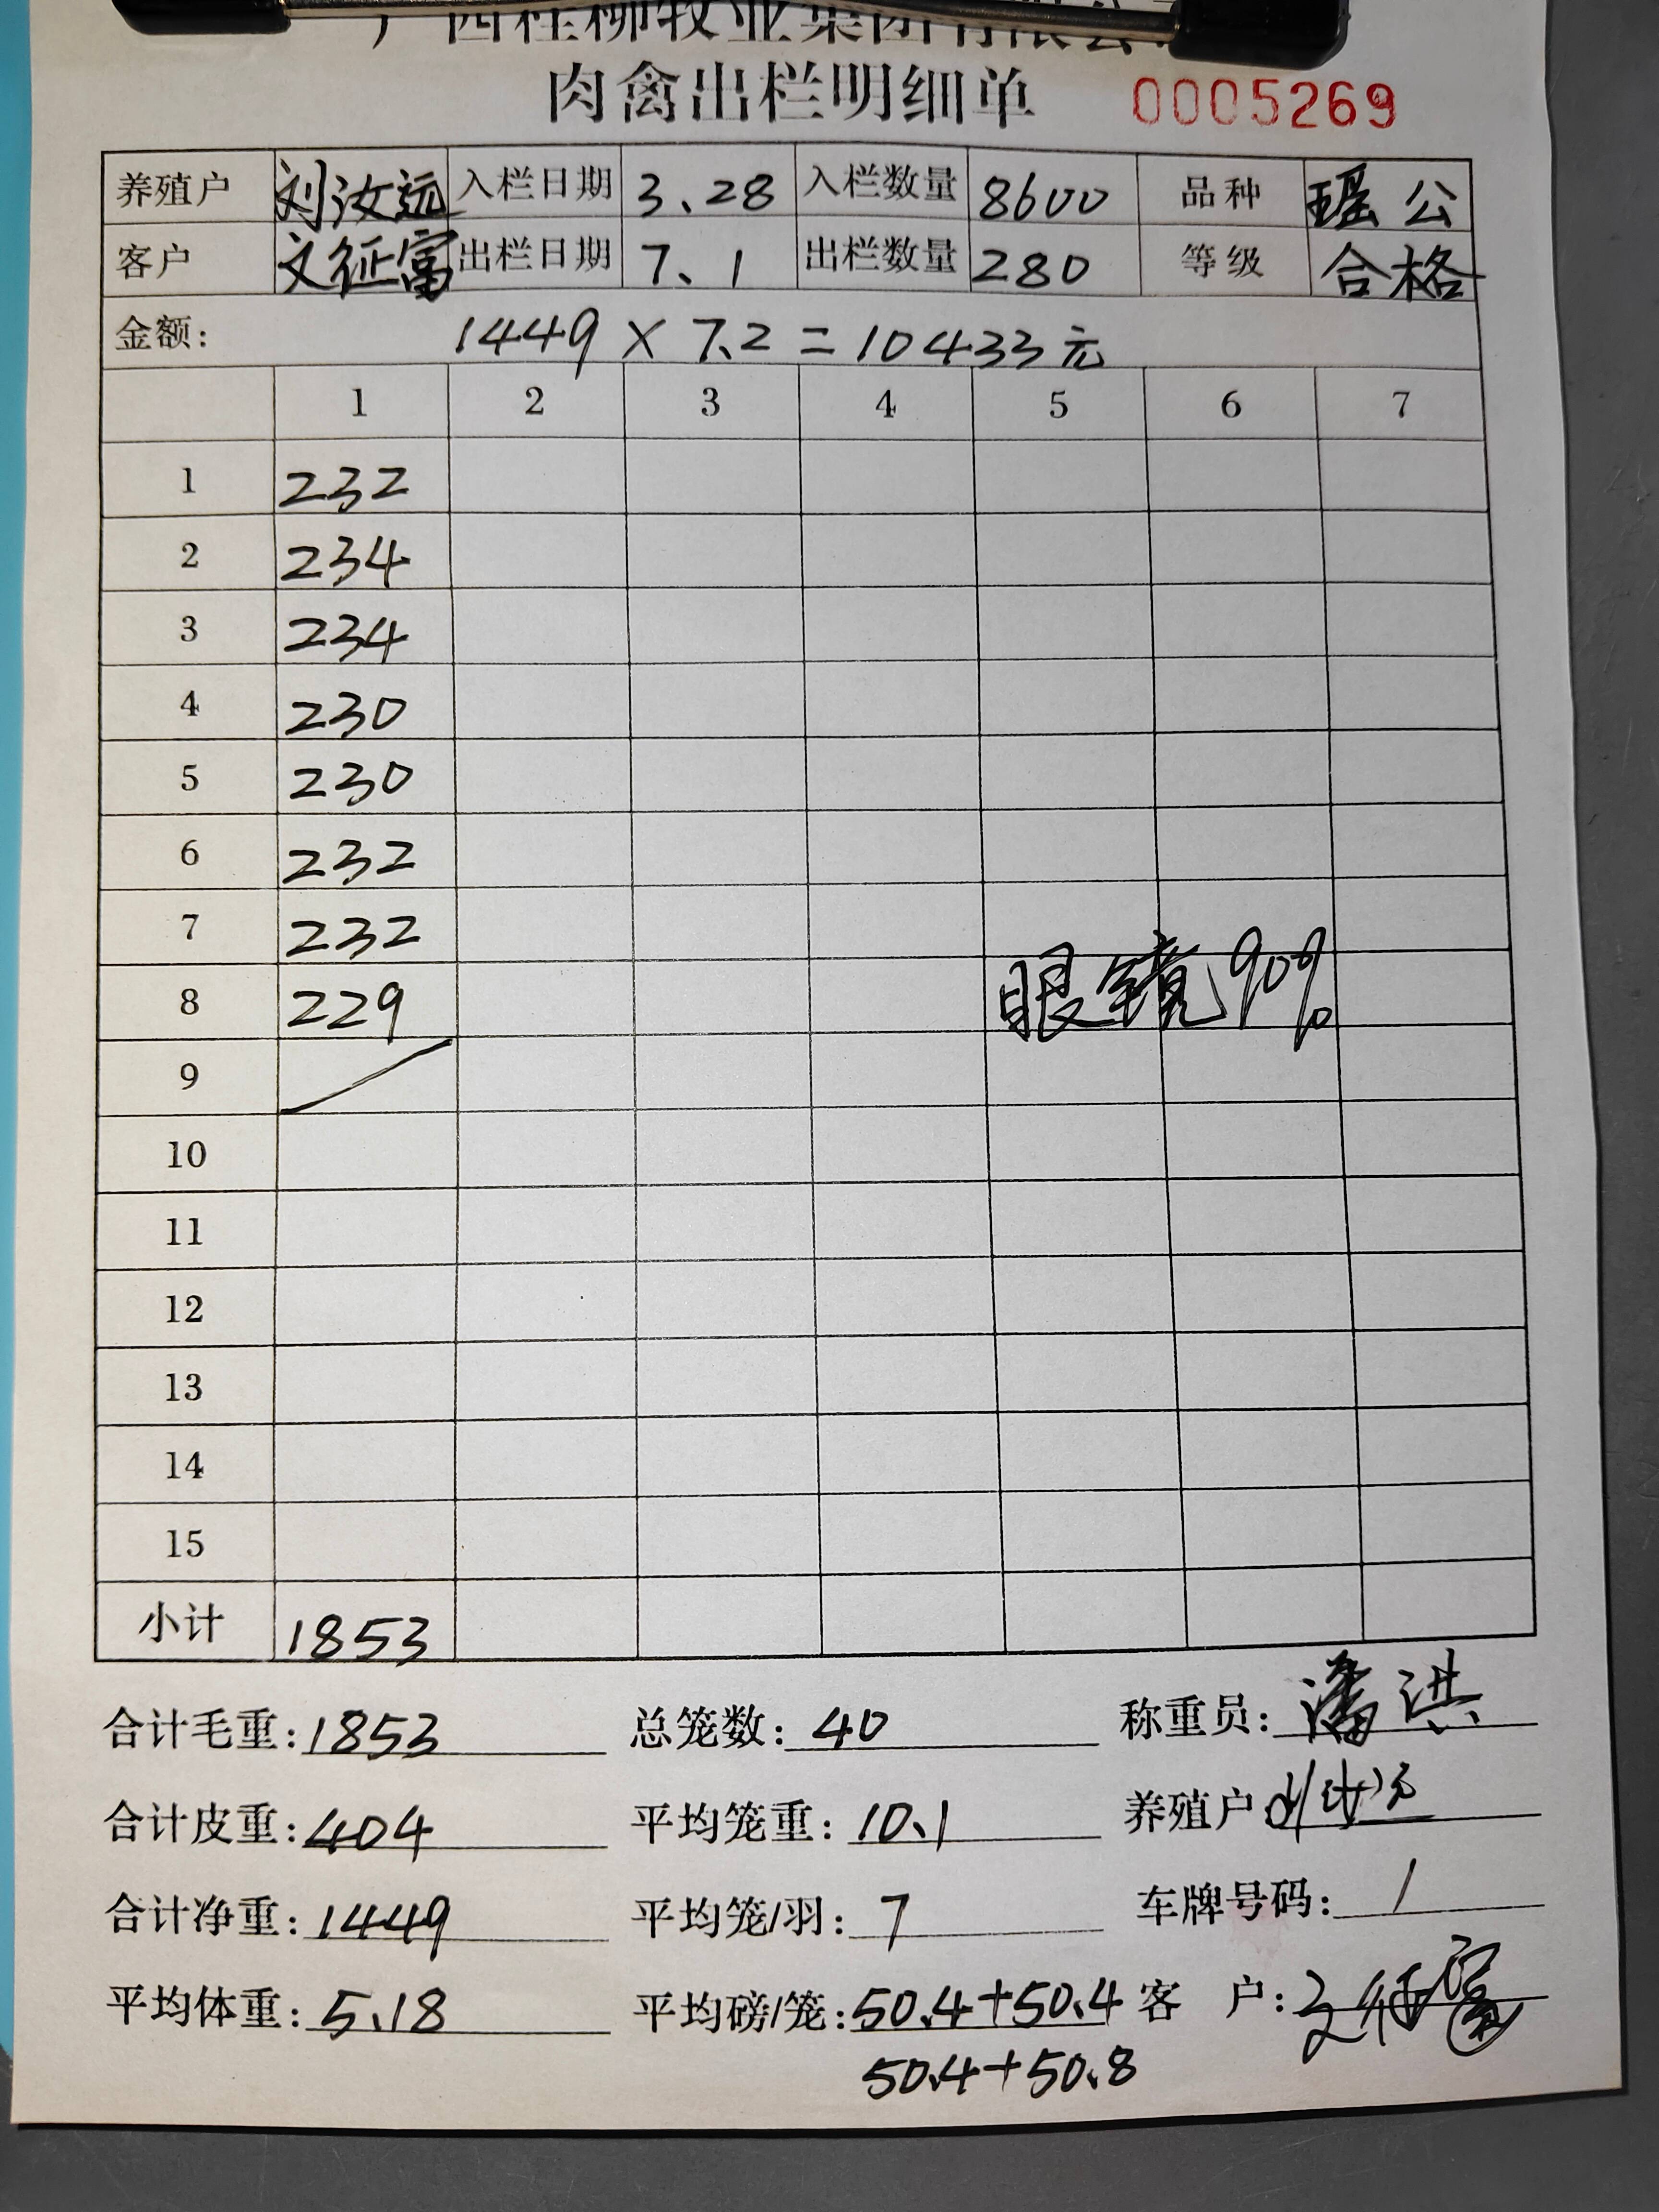 广西桂柳牧业集团有限公
肉禽出栏明细单 0005269
养殖户 刘汝远 入栏日期 3.28 入栏数量 8600 品种 瑶公
客户 文征富 出栏日期 7.1 出栏数量 280 等级 合格
金额: 1449 × 7.2 = 10433元
1 2 3 4 5 6 7
1 232
2 234
3 234
4 230
5 230
6 232
7 232
眼镜90%
8 229
9
10
11
12
13
14
15
小计 1853
合计毛重: 1853 总笼数: 40 称重员: 潘洪
合计皮重: 404 平均笼重: 10.1 养殖户
合计净重: 1449 平均笼/羽: 7 车牌号码: /
平均体重: 5.18 平均磅/笼: 50.4+50.4 客 户: 文征富
50.4+50.8